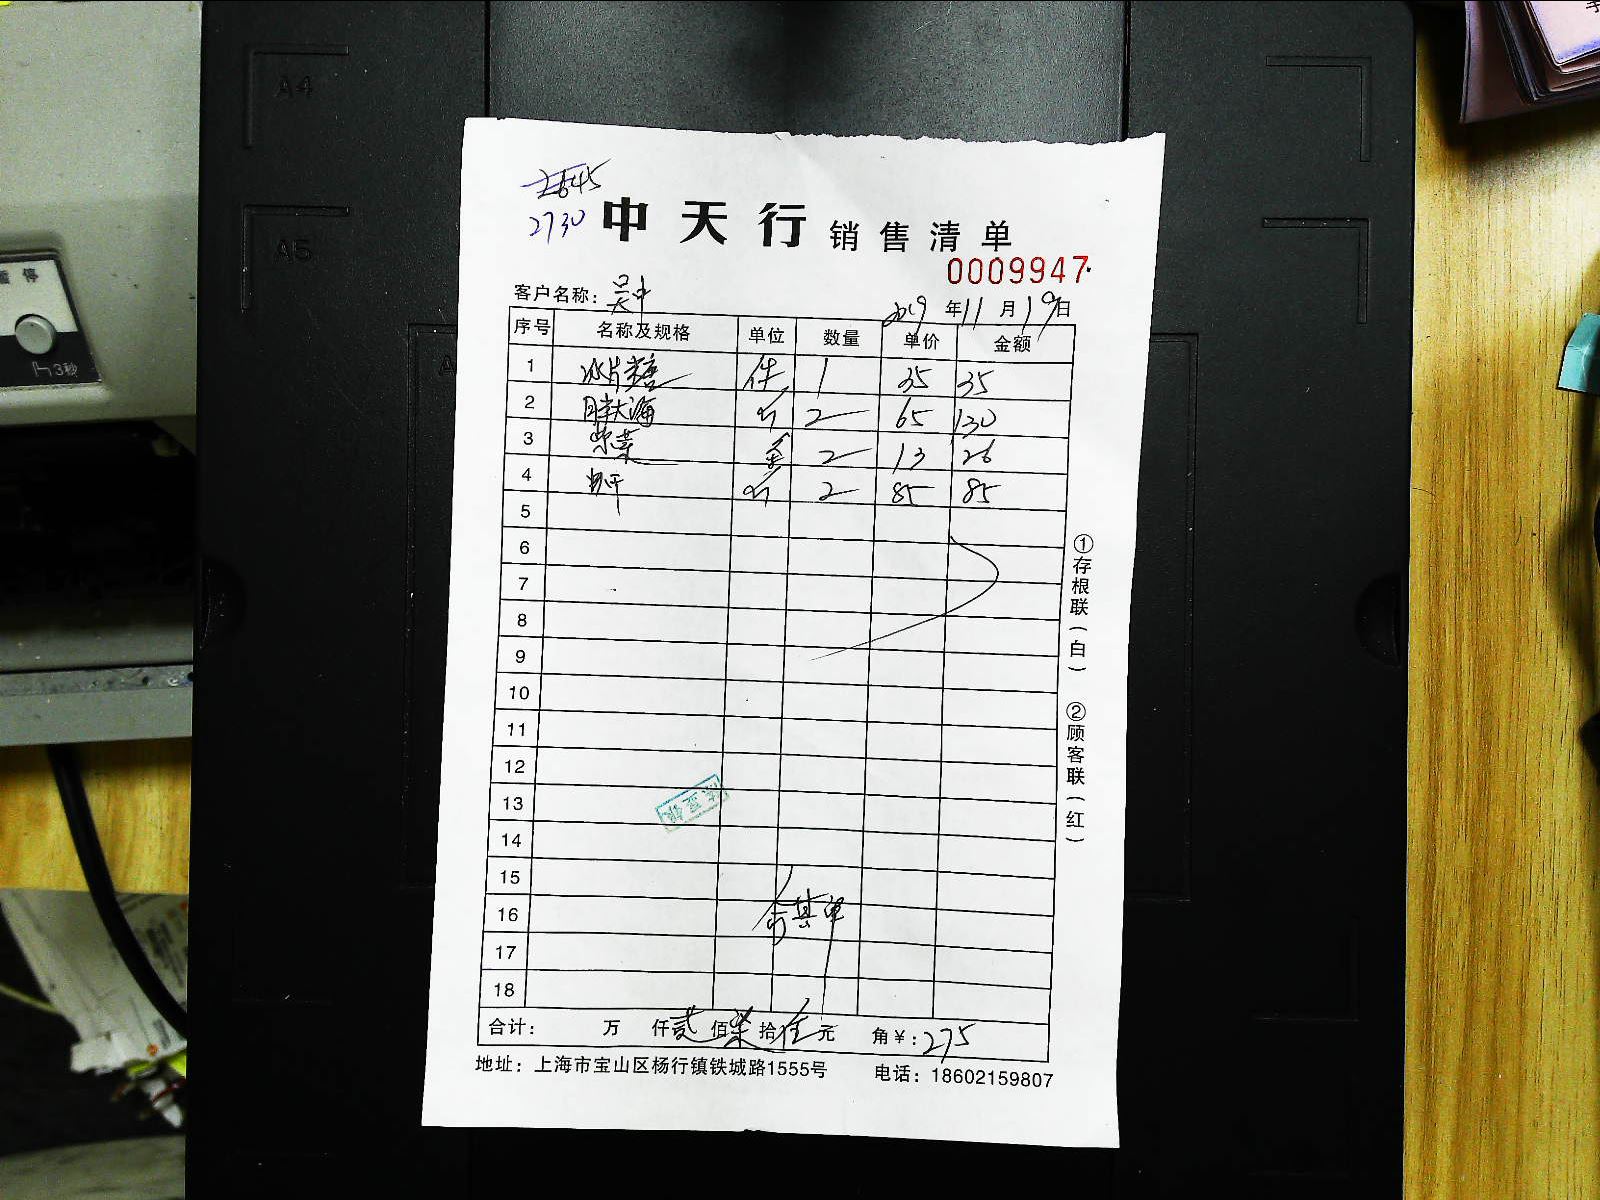 2645
2730
中天行 销售清单
0009947
客户名称: 吴中 2019年11月19日
序号 名称及规格 单位 数量 单价 金额
1 冰片糖 件 1 35 35
2 胖大海 斤 2 65 130
3 紫菜 2 13 26
4 斤 2 85 85
5
6
7
8
9
10
11
12
13
14
15
16
17
18
合计: 万 仟贰佰柒拾伍元 角¥:275
地址:上海市宝山区杨行镇铁城路1555号 电话:18602159807
①存根联(白) ②顾客联(红)
A4
A5
暂停
3秒